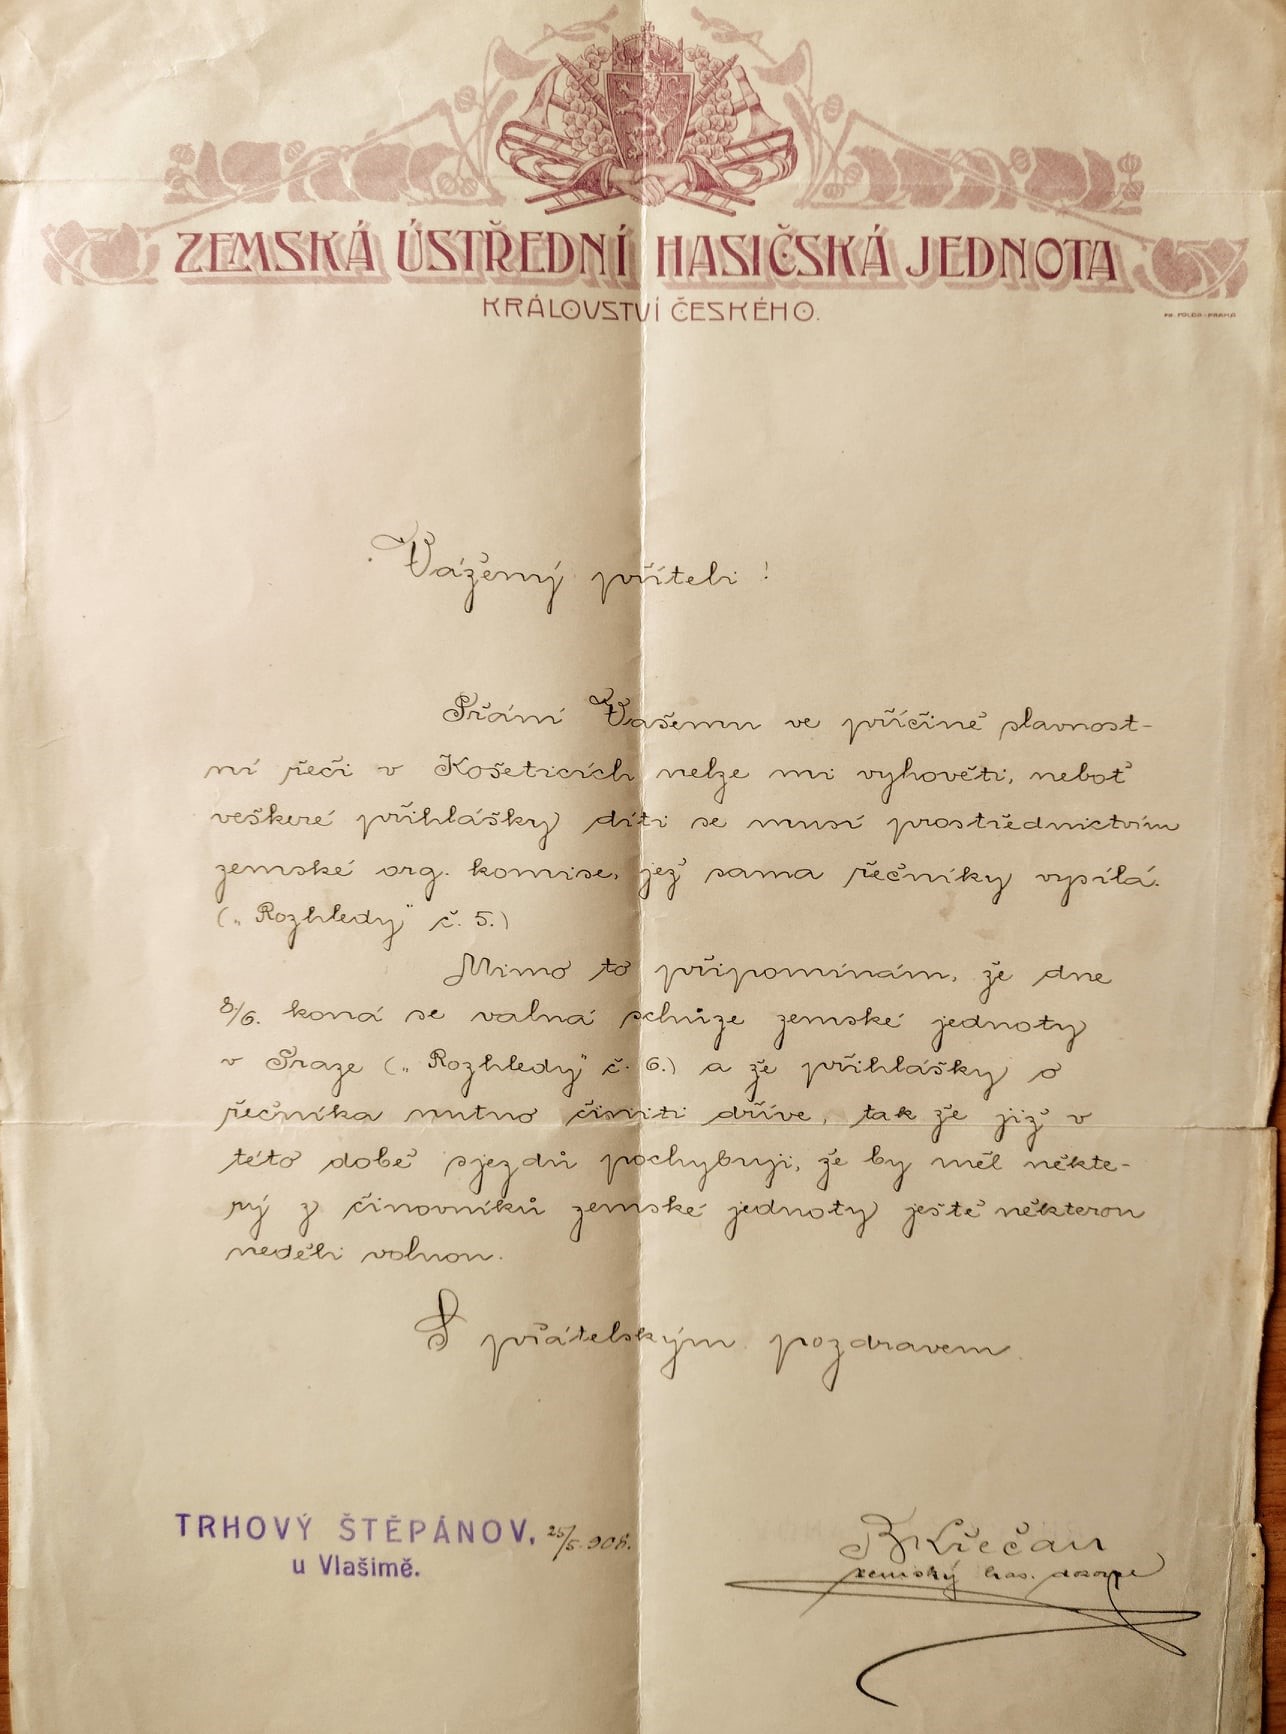 ZEMSKÁ ÚSTŘEDNÍ HASIČSKÁ JEDNOTA
KRÁLOVSTVÍ ČESKÉHO.
Vážený příteli!
Přání Vašemu ve příčině slavnost-
ní řeči v Košeticích nelze mi vyhověti, neboť
veškeré přihlášky díti se musí prostřednictvím
zemské org. komise, jež sama řečníky vysílá.
(„Rozhledy" č. 5.)
Mimo to připomínám, že dne
8/6. koná se valná schůze zemské jednoty
v Praze („Rozhledy" č. 6.) a že přihlášky o
řečníka nutno činiti dříve, tak že již v
této době sjezdů pochybuji, že by měl někte-
rý z činovníků zemské jednoty ještě některou
neděli volnou.
S přátelským pozdravem
TRHOVÝ ŠTĚPÁNOV, 25/5. 908.
u Vlašimě.
B Křečan
zemský has. dozorce